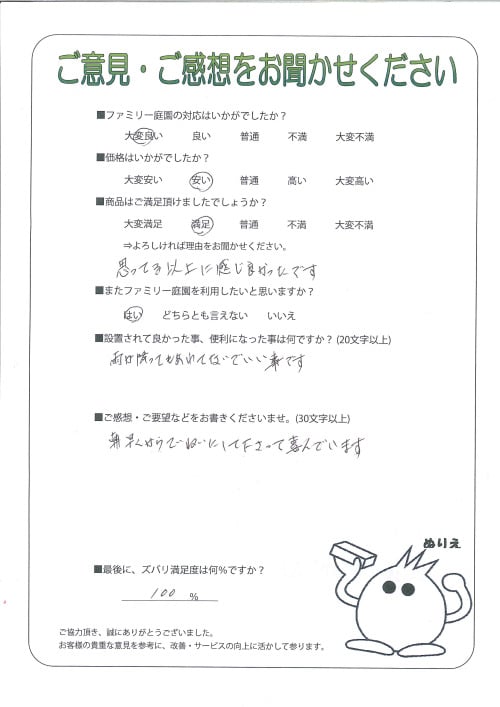 ご意見・ご感想をお聞かせください
■ファミリー庭園の対応はいかがでしたか？
大変良い 良い 普通 不満 大変不満
■価格はいかがでしたか？
大変安い 安い 普通 高い 大変高い
■商品はご満足頂けましたでしょうか？
大変満足 満足 普通 不満 大変不満
⇒よろしければ理由をお聞かせください。
思ってる以上に感じ良かったです
■またファミリー庭園を利用したいと思いますか？
はい どちらとも言えない いいえ
■設置されて良かった事、便利になった事は何ですか？(20文字以上)
雨が降ってもあわてないでいい事です
■ご感想・ご要望などをお書きくださいませ。(30文字以上)
朝早くからていねいにして下さって喜んでいます
ぬりえ
■最後に、ズバリ満足度は何％ですか？
100 %
ご協力頂き、誠にありがとうございました。
お客様の貴重な意見を参考に、改善・サービスの向上に活かして参ります。